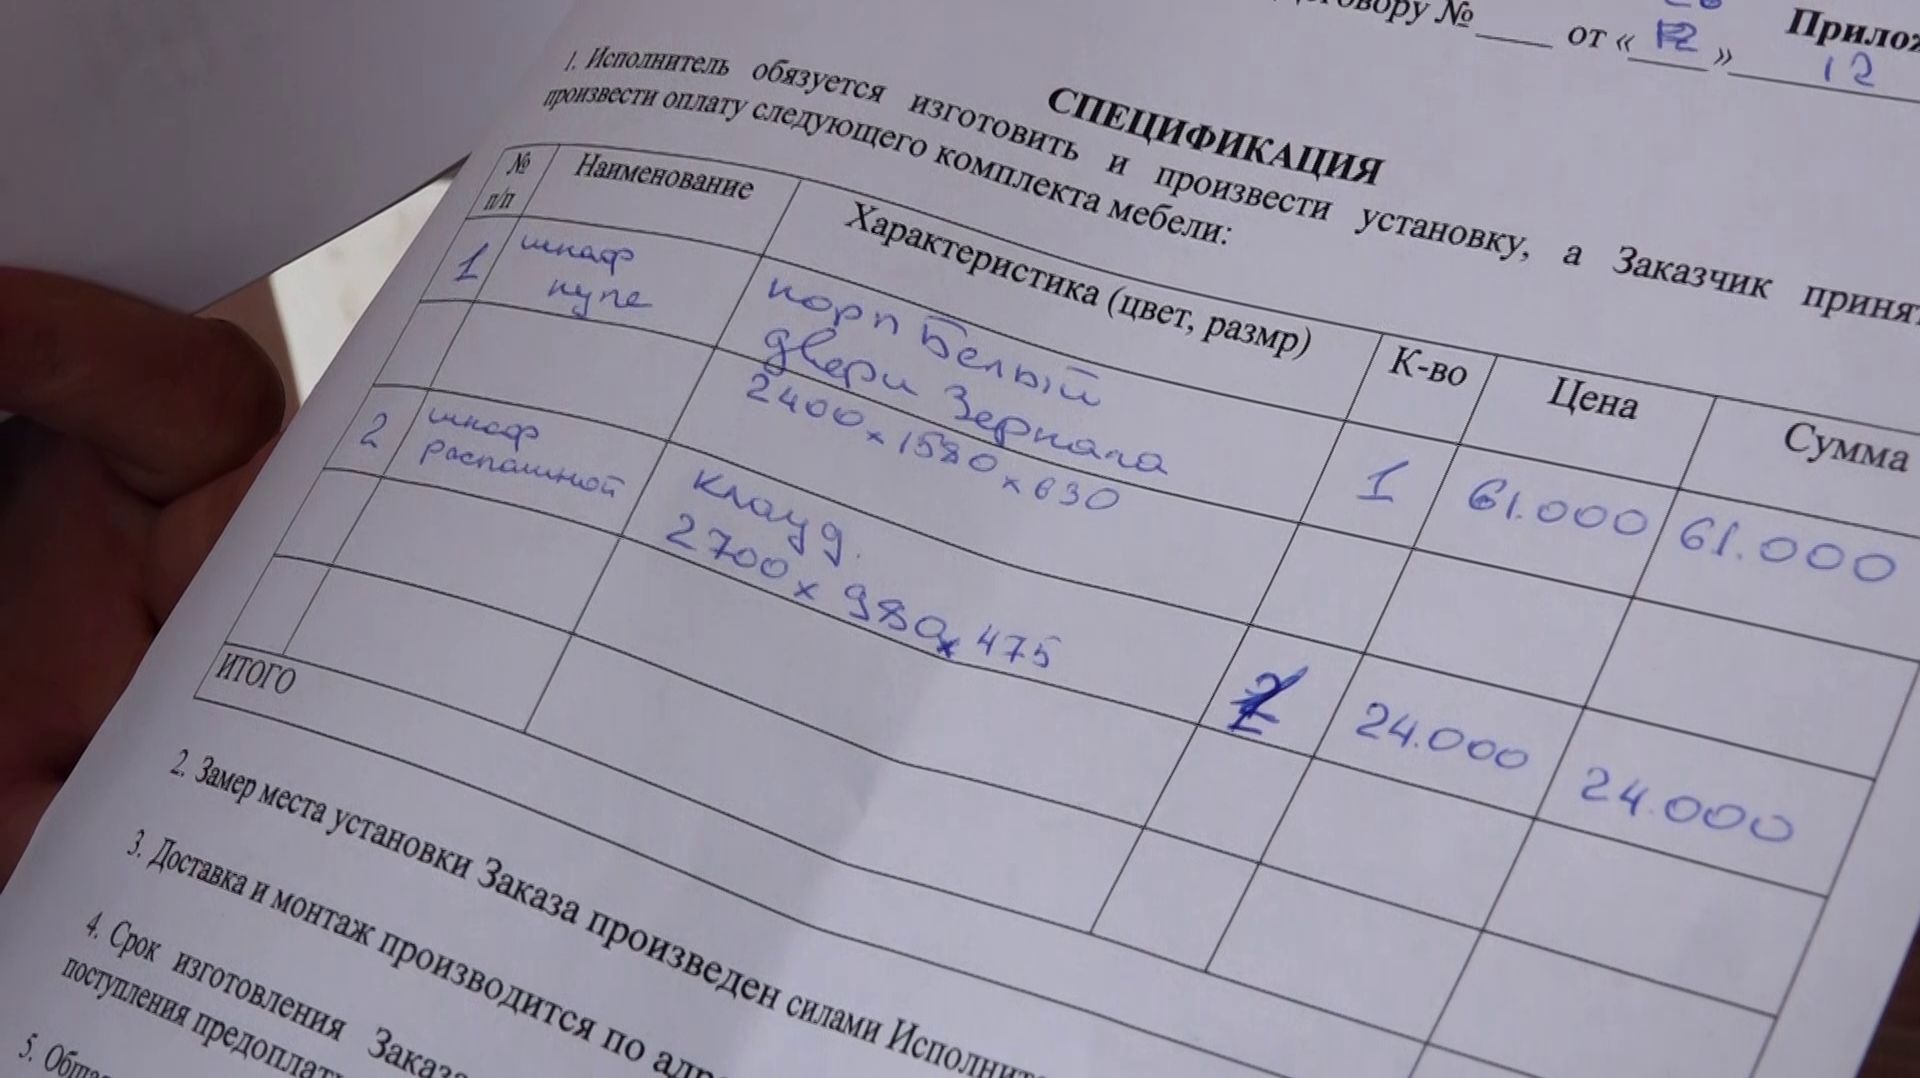 договору № ____ от «____» 12
СПЕЦИФИКАЦИЯ
1. Исполнитель обязуется изготовить и произвести установку, а Заказчик
произвести оплату следующего комплекта мебели:
№ п/п Наименование Характеристика (цвет, размр) К-во Цена Сумма
1 шкаф купе корп Белый 1 61.000 61.000
двери Зеркала
2400 x 1580 x 630
2 шкаф распашной Клауд. 24.000 24.000
2700 x 980 x 475
ИТОГО
2. Замер места установки Заказа произведен силами
3. Доставка и монтаж производится по
4. Срок изготовления Заказа
поступления
5.